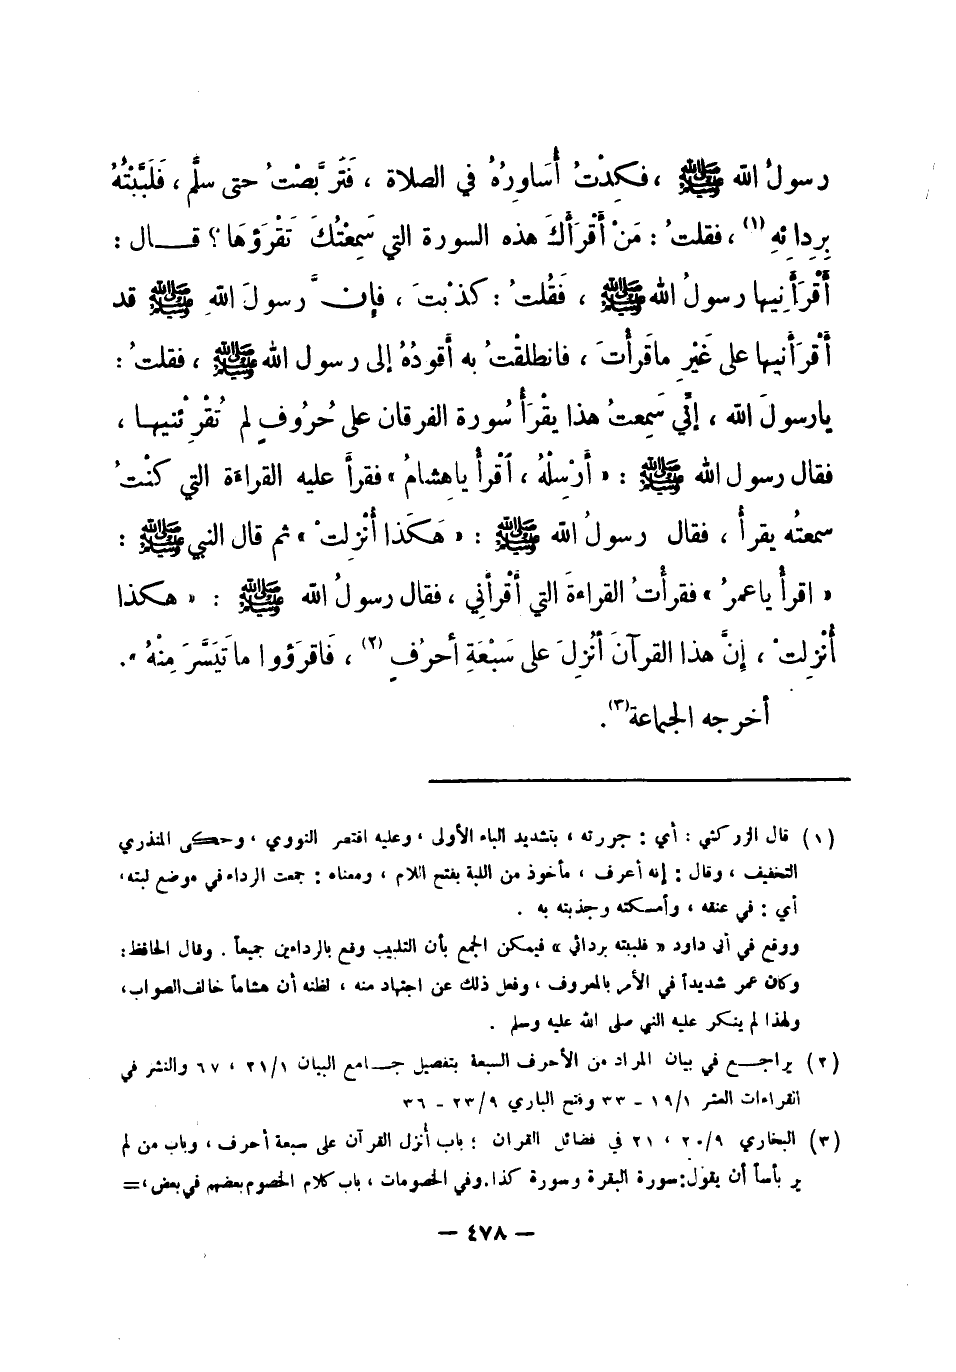 رسولُ الله ﷺ ، فكِدْتُ أُسَاوِرُهُ في الصلاة ، فَتَرَبَّصْتُ حتى سلَّم ، فَلَبَّبْتُهُ
بِرِدائِهِ (١) ، فقلتُ : مَنْ أَقْرَأَكَ هذه السورة التي سَمِعْتُكَ تَقْرَؤهَا ؟ قــال :
أَقْرَأَنِيها رسولُ الله ﷺ ، فَقُلتُ : كذبْتَ ، فإن َّ رسولَ اللهِ ﷺ قد
أَقْرَأَنيها على غَيْرِ ماقَرأْتَ ، فانطلقْتُ به أَقودُهُ إلى رسول الله ﷺ ، فقلتُ :
يارسولَ الله ، إنِّي سَمِعتُ هذا يقْرَأُ سُورة الفرقان على حُرُوفٍ لم تُقْرِئنيها ،
فقال رسول الله ﷺ : « أَرْسِلْهُ ، اقْرأْ ياهِشامُ » فقرأَ عليه القراءة التي كنْتُ
سمعتُه يقرأُ ، فقال رسولُ الله ﷺ : « هَكَذا أُنْزِلتْ » ثم قال النبي ﷺ :
« اقرأْ ياعمرُ » فقرأتُ القراءةَ التي أَقْرأَني ، فقال رسولُ الله ﷺ : « هكذا
أُنْزِلتْ ، إنَّ هذا القرآنَ أُنْزِلَ على سَبْعَةِ أحرُفٍ (٢) ، فَاقرَؤوا ما تَيَسَّرَ مِنْهُ » .
أخرجه الجماعة (٣) .
(١) قال الزركشي : أي : جررته ، بتشديد الباء الأولى ، وعليه اقتصر النووي ، وحكى المنذري
التخفيف ، وقال : إنه أعرف ، مأخوذ من اللبة بفتح اللام ، ومعناه : جمعت الرداء في موضع لبته ،
أي : في عنقه ، وأمسكته وجذبته به .
ووقع في أبي داود « فلببته بردائي » فيمكن الجمع بأن التلبيب وقع بالرداءين جميعاً . وقال الحافظ :
وكان عمر شديداً في الأمر بالمعروف ، وفعل ذلك عن اجتهاد منه ، لظنه أن هشاماً خالف الصواب ،
ولهذا لم ينكر عليه النبي صلى الله عليه وسلم .
(٢) يراجــع في بيان المراد من الأحرف السبعة بتفصيل جــامع البيان ٢١/١ ، ٦٧ والنشر في
القراءات العشر ١٩/١ - ٣٣ وفتح الباري ٢٣/٩ - ٣٦
(٣) البخاري ٢٠/٩ ، ٢١ في فضائل القرآن : باب أُنزل القرآن على سبعة أحرف ، وباب من لم
ير بأساً أن يقول : سورة البقرة وسورة كذا . وفي الخصومات ، باب كلام الخصوم بعضهم في بعض ، =
— ٤٧٨ —